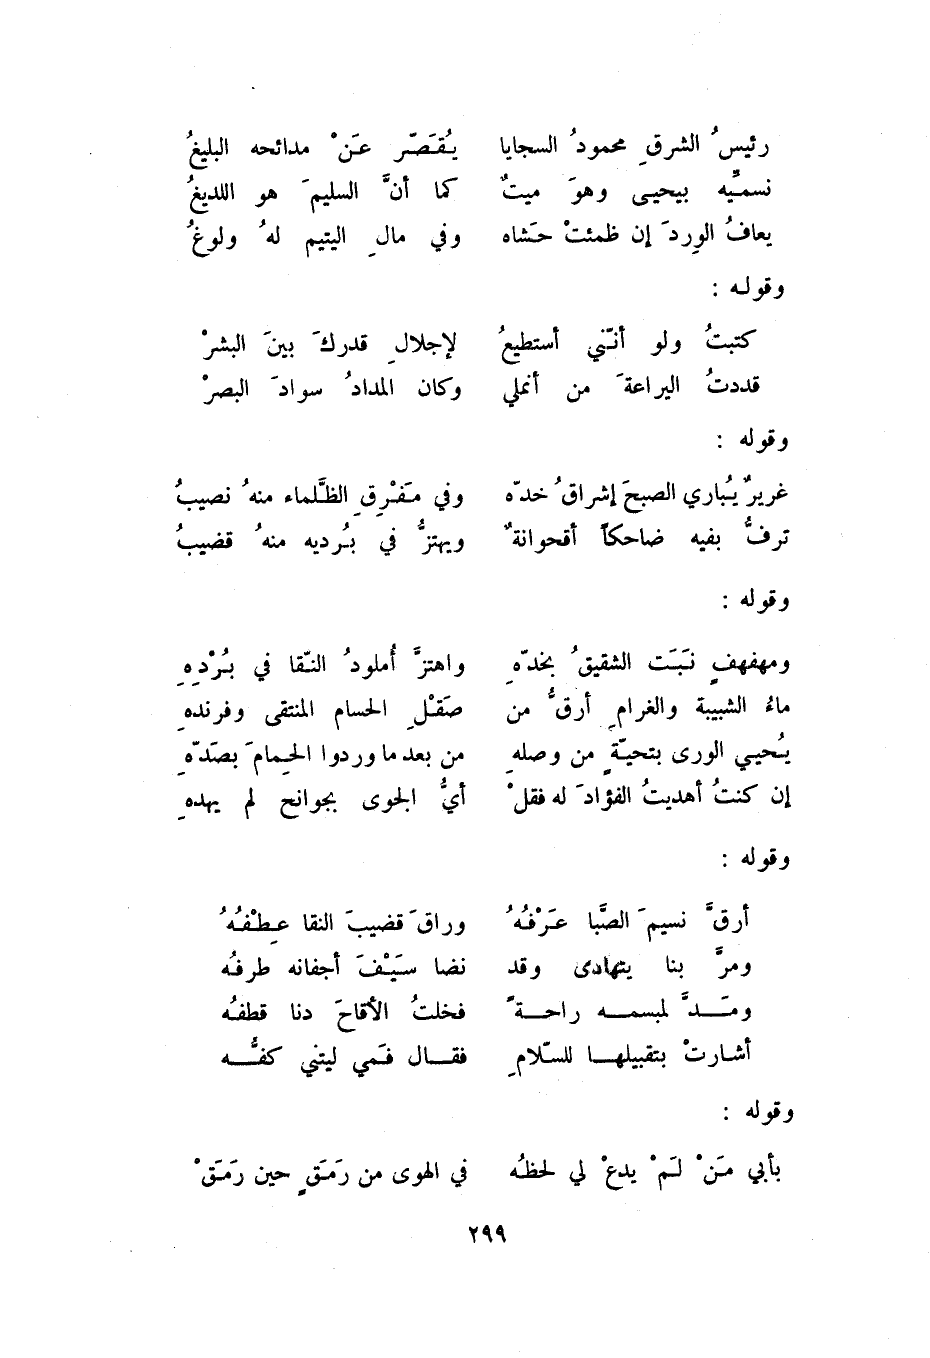 رئيسُ الشرقِ محمودُ السجايا يُقَصّر عَنْ مدائحه البليغُ
نسمّيه بيحيى وهوَ ميتٌ كما أنَّ السليمَ هو اللديغُ
يعافُ الوِردَ إن ظمئتْ حَشاه وفي مالِ اليتيم لهُ ولوغُ
وقوله :
كتبتُ ولو أنّني أستطيعُ لإجلالِ قدركَ بينَ البشرْ
قددتُ اليراعةَ من أنملي وكان المدادُ سوادَ البصرْ
وقوله :
غريرٌ يُباري الصبحَ إشراقُ خدّه وفي مَفْرِقِ الظَّلماء منهُ نصيبُ
ترفُّ بفيه ضاحكاً أقحوانةٌ ويهتزُّ في بُرديه منهُ قضيبُ
وقوله :
ومهفهفٍ نَبَت الشقيقُ بخدّهِ واهتزَّ أُملودُ النّقا في بُرْدِهِ
ماءُ الشبيبة والغرامِ أرقُّ من صَقْلِ الحسام المنتقى وفرندهِ
يُحيي الورى بتحيّةٍ من وصلهِ من بعد ما وردوا الحِمامَ بصَدّهِ
إن كنتُ أهديتُ الفؤادَ له فقلْ أيُّ الجوى بجوانح لم يهدهِ
وقوله :
أرقَّ نسيمَ الصَّبا عَرْفُهُ وراقَ قضيبَ النقا عِطْفُهُ
ومرَّ بنا يتهادى وقد نضا سَيْفَ أجفانه طرفُه
ومَدَّ لمبسمه راحةً فخلتُ الأقاحَ دنا قطفُه
أشارتْ بتقبيلها للسّلامِ فقال فَمي ليتني كفُّه
وقوله :
بأبي مَنْ لَمْ يدعْ لي لحظُه في الهوى من رَمَقٍ حين رَمَقْ
٢٩٩